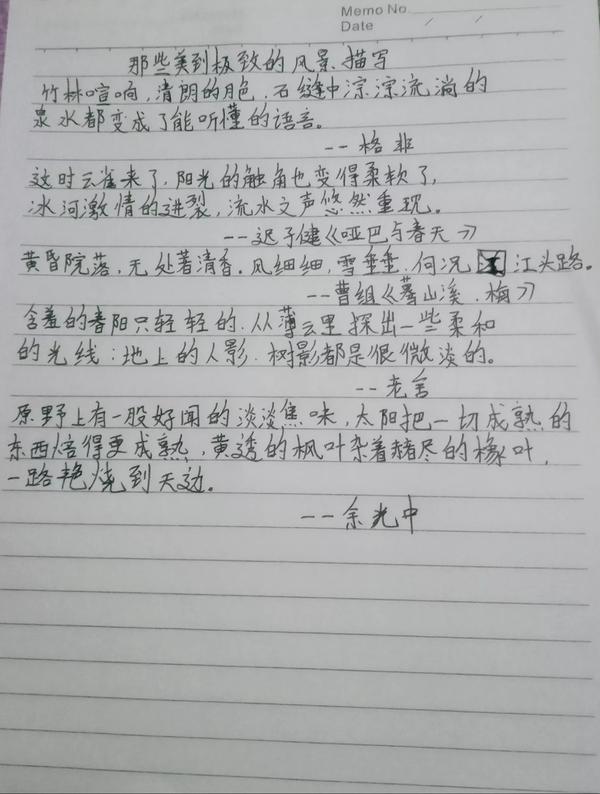 Memo No.
Date / /
那些美到极致的风景描写
竹林喧响,清朗的月色,石缝中淙淙流淌的
泉水都变成了能听懂的语言。
--格非
这时云雀来了,阳光的触角也变得柔软了,
冰河激情的迸裂,流水之声悠然重现。
--迟子健《哑巴与春天》
黄昏院落,无处著清香。风细细,雪垂垂,何况江头路。
--曹组《蓦山溪.梅》
含羞的春阳只轻轻的,从薄云里探出一些柔和
的光线:地上的人影,树影都是很微淡的。
--老舍
原野上有一股好闻的淡淡焦味,太阳把一切成熟的
东西焙得更成熟,黄透的枫叶杂着赭尽的橡叶,
一路艳烧到天边。
--余光中